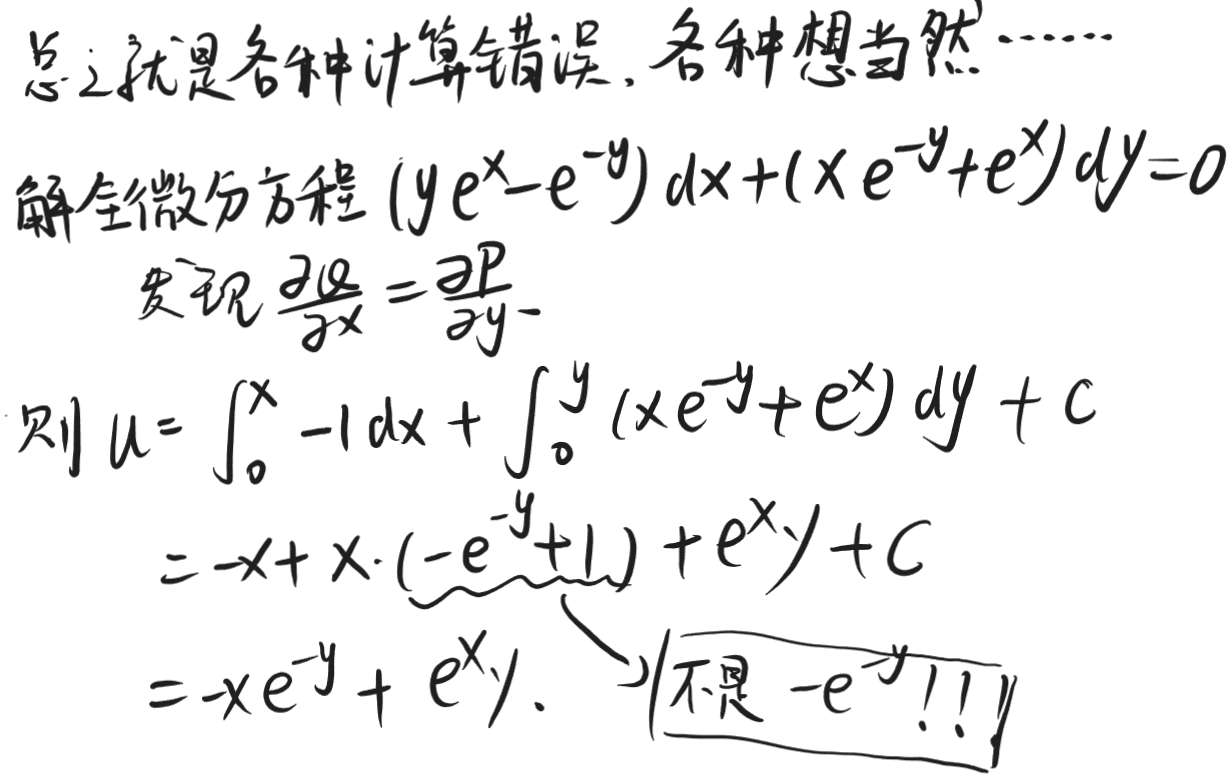 总之就是各种计算错误,各种想当然……
解全微分方程 (ye^x-e^{-y})dx+(xe^{-y}+e^x)dy=0
发现 ∂Q/∂x = ∂P/∂y
则 u= ∫_0^x -1dx + ∫_0^y (xe^{-y}+e^x)dy + C
= -x+x·(-e^{-y}+1)+e^x·y+C
= -xe^{-y}+e^x·y.
不是 -e^{-y}!!!